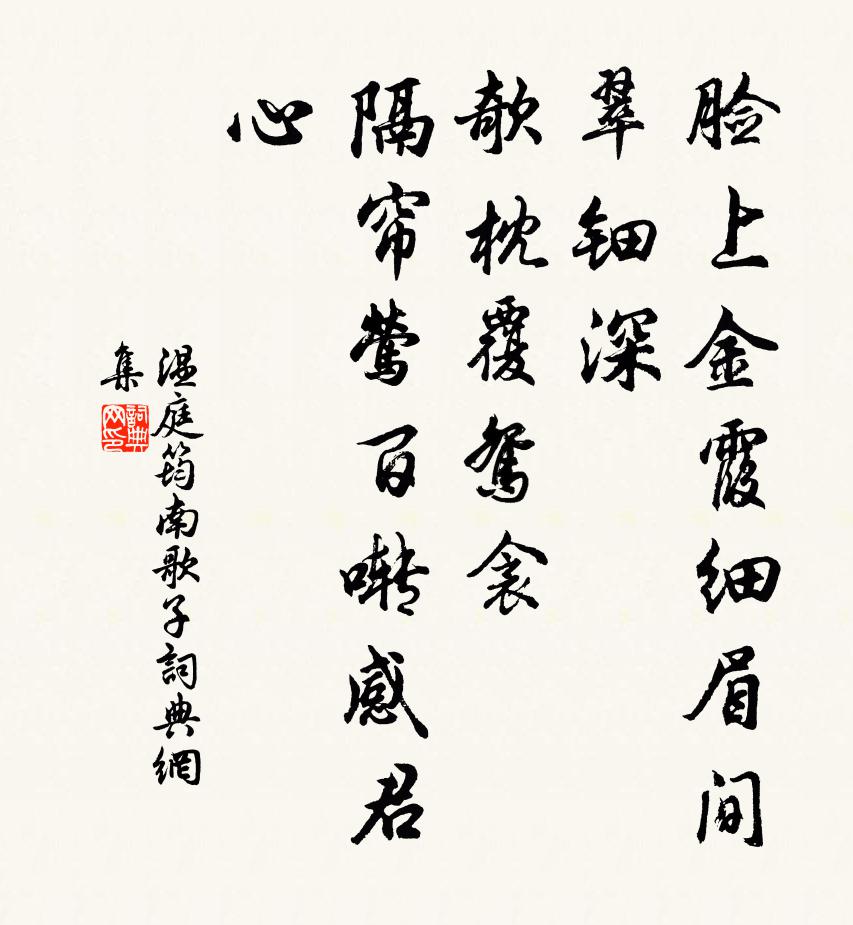 脸上金霞细眉间
翠钿深
欹枕覆鸳衾
隔帘莺百啭感君
心
温庭筠南歌子詞典網
集
詞典
网印